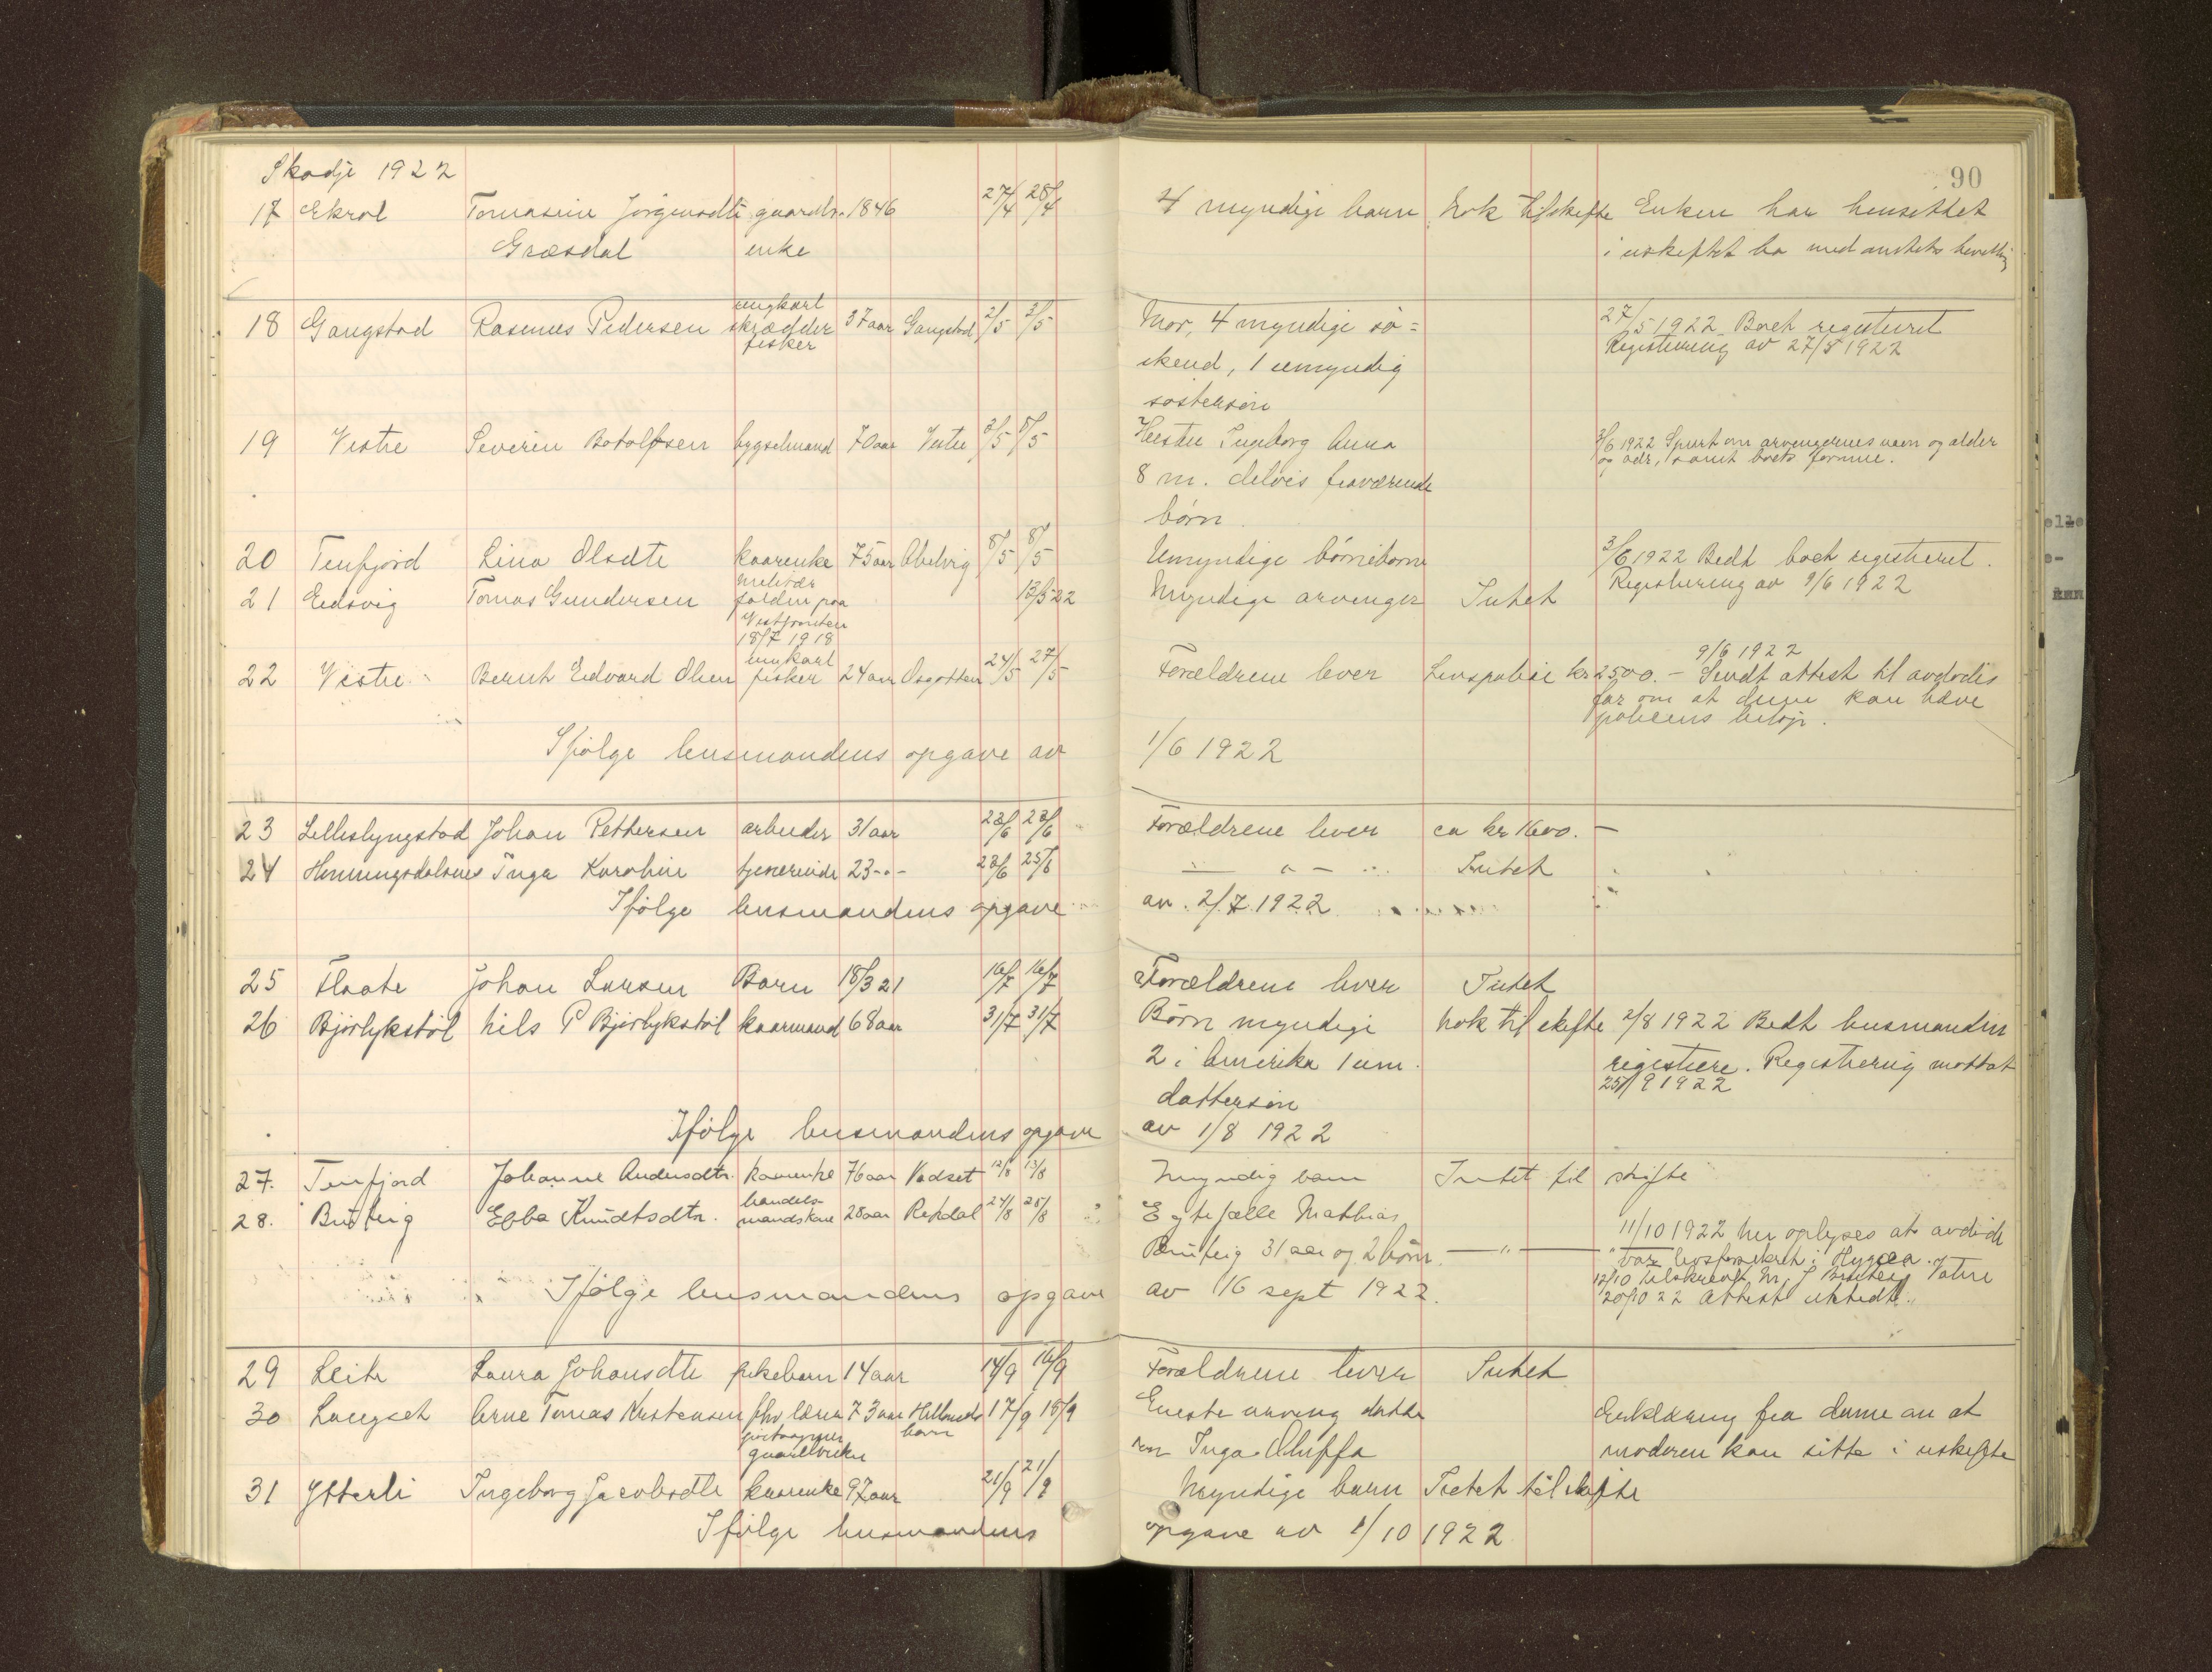 Skodje 1922
90
17 Ekrol Tomasine Jørgensdtr gaardbr. 1846 27/4 28/4 4 myndige barn Nok til skifte Enken har hensittet
Græsdal enke i uskiftet bo med amtets bevilling
ungkarl
18 Gangstad Rasmus Pedersen skrædder 37 aar Gangstad 2/5 3/5 Mor, 4 myndige sø= 27/5 1922 Boet registreret
fisker Registrering av 27/5 1922
skend, 1 umyndig
søstersøn
19 Vestre Severin Botolfsen bygselmand 70 aar Vestre 2/5 5/5 Hustru Ingeborg Anna 3/6 1922 Spurt om arvingernes navn og alder
og adr, samt boets formue.
8 m. delvis fraværende
børn.
20 Tenfjord Lina Olsdtr kaarenke 75 aar Abelvig 8/5 8/5 Umyndige børnebørn 3/6 1922 Bedt boet registreret.
militær
21 Eidsvig Tomas Gundersen falden paa 12/5 22 Myndige arvinger Intet Registrering av 9/6 1922
Vestfronten
18/7 1918
ungkarl 9/6 1922
22 Vestre Bernt Edvard Olsen fisker 24 aar 24/5 27/5 Forældrene lever Livspolise kr 2500.- Sendt attest til avdødes
far om at denne kan hæve
polisens beløp.
Ifølge lensmandens opgave av 1/6 1922
23 Lilleslyngstad Johan Pettersen arbeider 31 aar 23/6 23/6 Forældrene lever ca kr 1600.-
24 Henningsdalsnes Inga Karoline tjenerinde 23 -"- 23/6 25/6 - " - Intet
Ifølge lensmandens opgave av 2/7 1922
25 Flaate Johan Larsen Barn 18/3 21 16/7 16/7 Forældrene lever Intet
26 Bjørlykstøl Nils P Bjørlykstøl kaarmand 68 aar 31/7 31/7 Børn myndige Nok til skifte 2/8 1922 Bedt lensmanden
2 i Amerika 1 um. registrere. Registrering mottat
25/9 1922
dattersøn
Ifølge lensmandens opgave av 1/8 1922
27. Tenfjord Johanne Andersdtr. kaarenke 76 aar Vadset 12/8 13/8 Myndig barn Intet til skifte
handels-
28. Bruteig Ebba Knudtsdtr. mandskone 28 aar Rekdal 24/8 25/8 Egtefælle Mathias 11/10 1922 Her oplyses at avdøde
Bruteig 31 aar og 2 børn. — " — var livsforsikret i Hygæa.
12/10 tilskrevet M. J Bruteig Vatne
Ifølge lensmandens opgave av 16 sept 1922. 20/10 22 Attest utstedt.
29 Leite Laura Johansdtr pikebarn 14 aar 14/9 16/9 Forældrene lever Intet
30 Langset Arne Tomas Kristensen fhv. lærer 73 aar 17/9 18/9 Eneste arving datte Erklæring fra denne an at
gaardbruker ren Inga Oluffa moderen kan sitte i uskifte
31 Ytterli Ingeborg Jacobsdtr kaarenke 97 aar 21/9 21/9 Myndige barn Intet til skifte
Ifølge lensmandens opgave av 1/10 1922